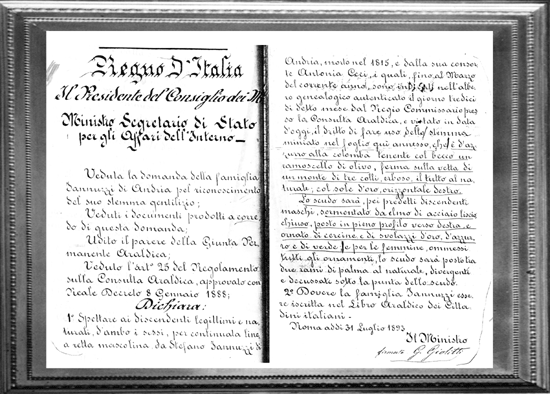 Regno D'Italia
Il Presidente del Consiglio dei M
Ministro Segretario di Stato
per gli Affari dell'Interno
Veduta la domanda della famiglia
Iannuzzi di Andria pel riconoscimento
del suo stemma gentilizio;
Veduti i documenti prodotti a corre,
do di questa domanda;
Udito il parere della Giunta Per,
manente Araldica;
Veduto l'art° 25 del Regolamento
sulla Consulta Araldica, approvato con
Reale Decreto 8 Gennaio 1888;
Dichiara:
1° Spettare ai discendenti legittimi e na,
turali, d'ambo i sessi, per continuata linea
a retta mascolina da Stefano Iannuzzi di
Andria, morto nel 1815, e dalla sua consor,
te Antonia Ceci, i quali, fino al Marzo
del corrente anno, sono indicati nell'albe,
ro genealogico autenticato il giorno tredici
di detto mese dal Regio Commissario pres,
so la Consulta Araldica, e vistato in data
d'oggi, il dritto di fare uso dello stemma
miniato nel foglio qui annesso, che è d'az,
zurro alla colomba tenente col becco un
ramoscello di olivo, ferma sulla vetta di
un monte di tre colli, erboso, il tutto al na,
turale; col sole d'oro, orizzontale destro.
Lo scudo sarà, pei predetti discendenti
maschi, sormontato da elmo di acciaio liscio
chiuso, posto in pieno profilo verso destra, e
ornato di cercine e di svolazzi d'oro, d'azzur,
ro e di verde; e per le femmine, ommessi
tutti gli ornamenti, lo scudo sarà posto tra
due rami di palma al naturale, divergenti
e decussati sotto la punta dello scudo.
2° Dovere la famiglia Iannuzzi esse,
re iscritta nel Libro Araldico dei Citta,
dini italiani:
Roma addì 31 Luglio 1893
Il Ministro
firmato G. Giolitti